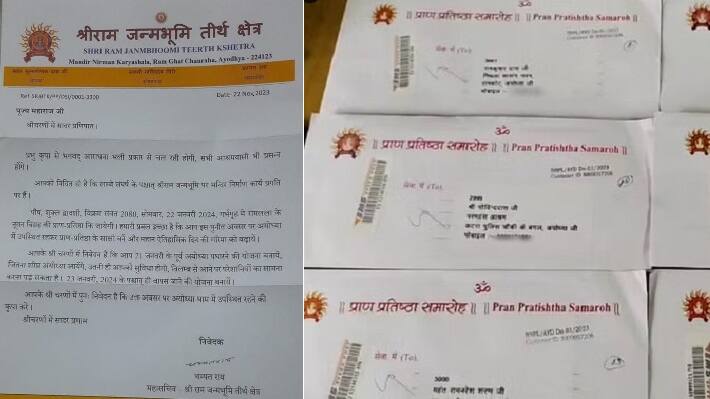 श्रीराम जन्मभूमि तीर्थ क्षेत्र
SHRI RAM JANMBHOOMI TEERTH KSHETRA
Mandir Nirman Karyashala, Ram Ghat Chauraha, Ayodhya - 224123
Date: 22 Nov, 2023
पूज्य महाराज जी
श्रीचरणों में सादर प्रणिपात।
प्रभु कृपा से भगवद् आराधना भली प्रकार से चल रही होगी, सभी आश्रमवासी भी प्रसन्न
होंगे।
आपको विदित ही है कि लम्बे संघर्ष के पश्चात् श्रीराम जन्मभूमि पर मन्दिर निर्माण कार्य प्रगति
पर है।
पौष, शुक्ल द्वादशी, विक्रम संवत 2080, सोमवार, 22 जनवरी 2024, गर्भगृह में रामलला के
नूतन विग्रह की प्राण-प्रतिष्ठा कि जायेगी। हमारी प्रबल इच्छा है कि आप इस पुनीत अवसर पर अयोध्या
में उपस्थित रहकर प्राण-प्रतिष्ठा के साक्षी बनें और महान ऐतिहासिक दिन की गरिमा को बढ़ायें।
आपके श्री चरणों में निवेदन है कि आप 21 जनवरी के पूर्व अयोध्या पधारने की योजना बनायें,
जितना शीघ्र अयोध्या आयेंगे, उतनी ही आपको सुविधा होगी, विलम्ब से आने पर परेशानियों का सामना
करना पड़ सकता है। 23 जनवरी, 2024 के पश्चात् ही वापस जाने की योजना बनायें।
आपके श्री चरणों में पुनः निवेदन है कि उक्त अवसर पर अयोध्या धाम में उपस्थित रहने की
कृपा करें।
श्रीचरणों में सादर प्रणाम
निवेदक
चम्पत राय
महासचिव - श्री राम जन्मभूमि तीर्थ क्षेत्र
ॐ
|| प्राण प्रतिष्ठा समारोह || Pran Pratishtha Samaroh ||
सेवा में (To),
ॐ
|| प्राण प्रतिष्ठा समारोह || Pran Pratishtha Samaroh ||
सेवा में (To),
श्री गोविन्ददास जी
कटरा पुलिस चौकी के बगल, अयोध्या जी
मोबाइल -
ॐ
|| प्राण प्रतिष्ठा समारोह || Pran Pratishtha Samaroh ||
सेवा में (To),
3000